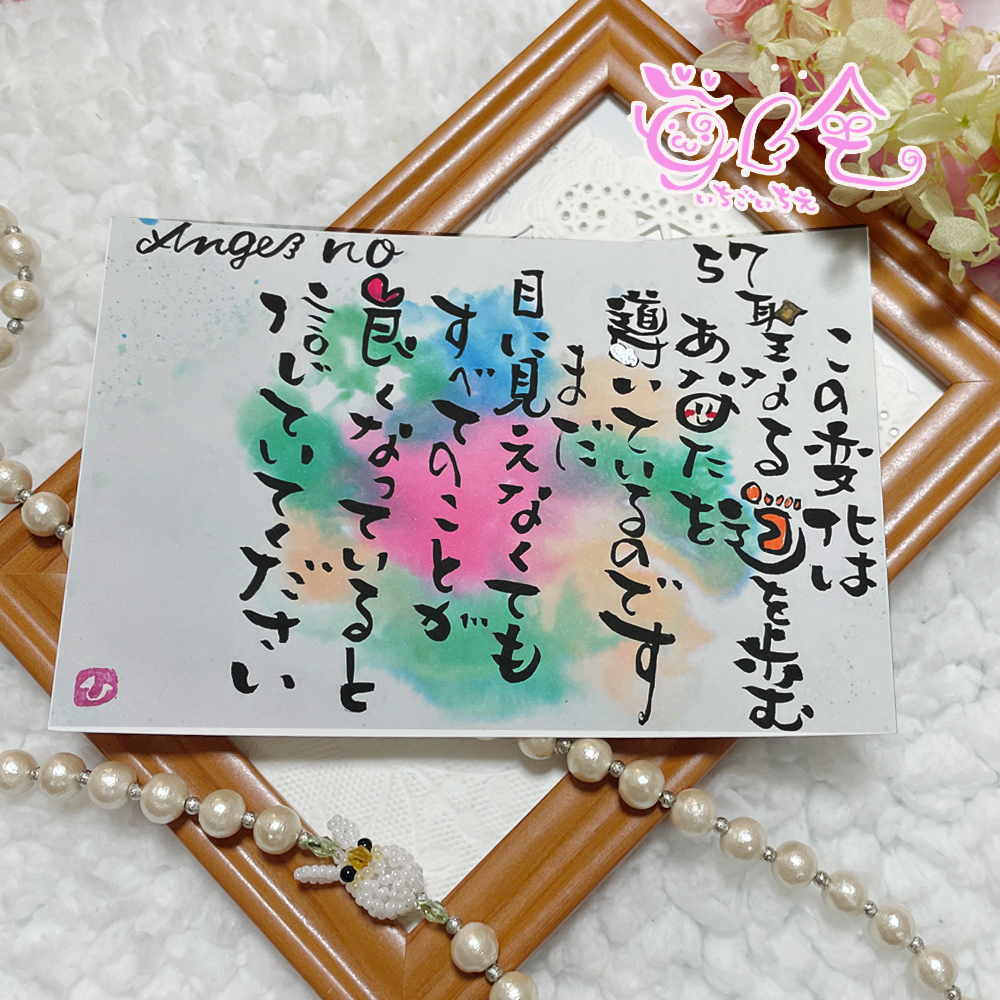 Angel no
57
この変化は
聖なる道を歩む
あなたを
導いているのです
まだ
目に見えなくても
すべてのことが
良くなっていると
信じていてください
いちごいちえ